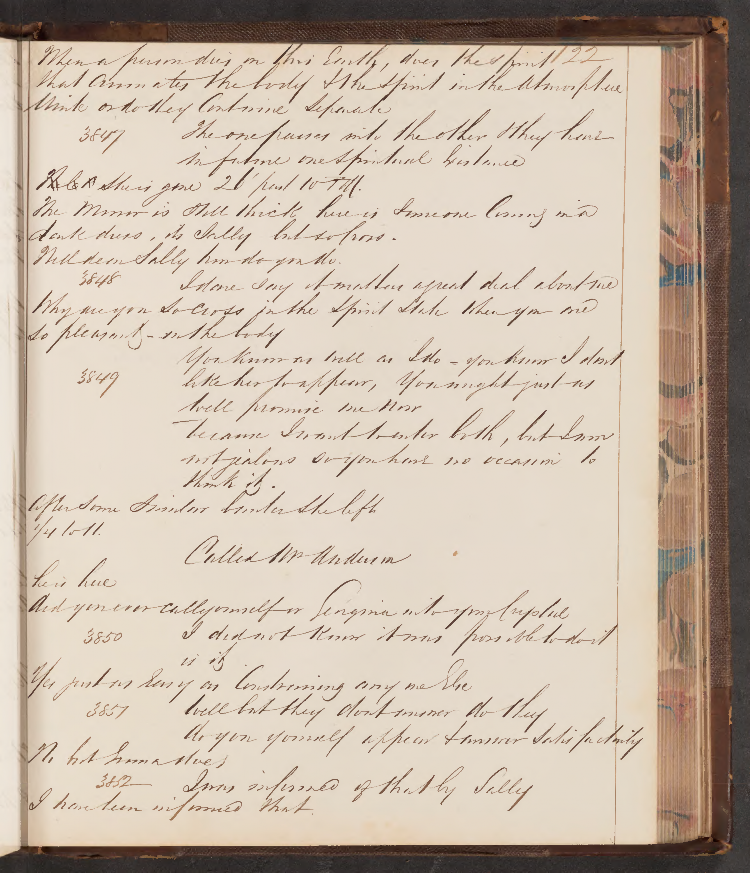 When a person dies on this Earth, does the spirit 122
that animates the body & the spirit in the atmosphere
Unite or do they Continue Separate
3847 The one passes into the other & they have
in future one Spiritual Existance
She is gone 26' past 10 PM.
The Mirror is Still thick here is Someone Coming in a
dark dress, its Sally but so Cross.
Well dear Sally how do you do.
3848 I dare Say it matters a great deal about me
Why are you So Cross in the Spirit State when you are
so pleasant in the body
You know as well as I do - you know I dont
3849 like her to appear, You might just as
well promise me now
because I want to enter both, but I am
not jealous so you have no occasion to
think it.
After Some Similar banter She left
1/4 to 11.
Called Mr Anderson
he is here
Did you ever call yourself or Georgina into your Crystal
3850 I did not Know it was possible to do it
is it
Yes just as Easy as Constraining any one Else
3851 Well but they dont answer do they
do you yourself appear & answer Satisfactorily
No but Emma does
3852 I was informed of that by Sally
I have been informed that.